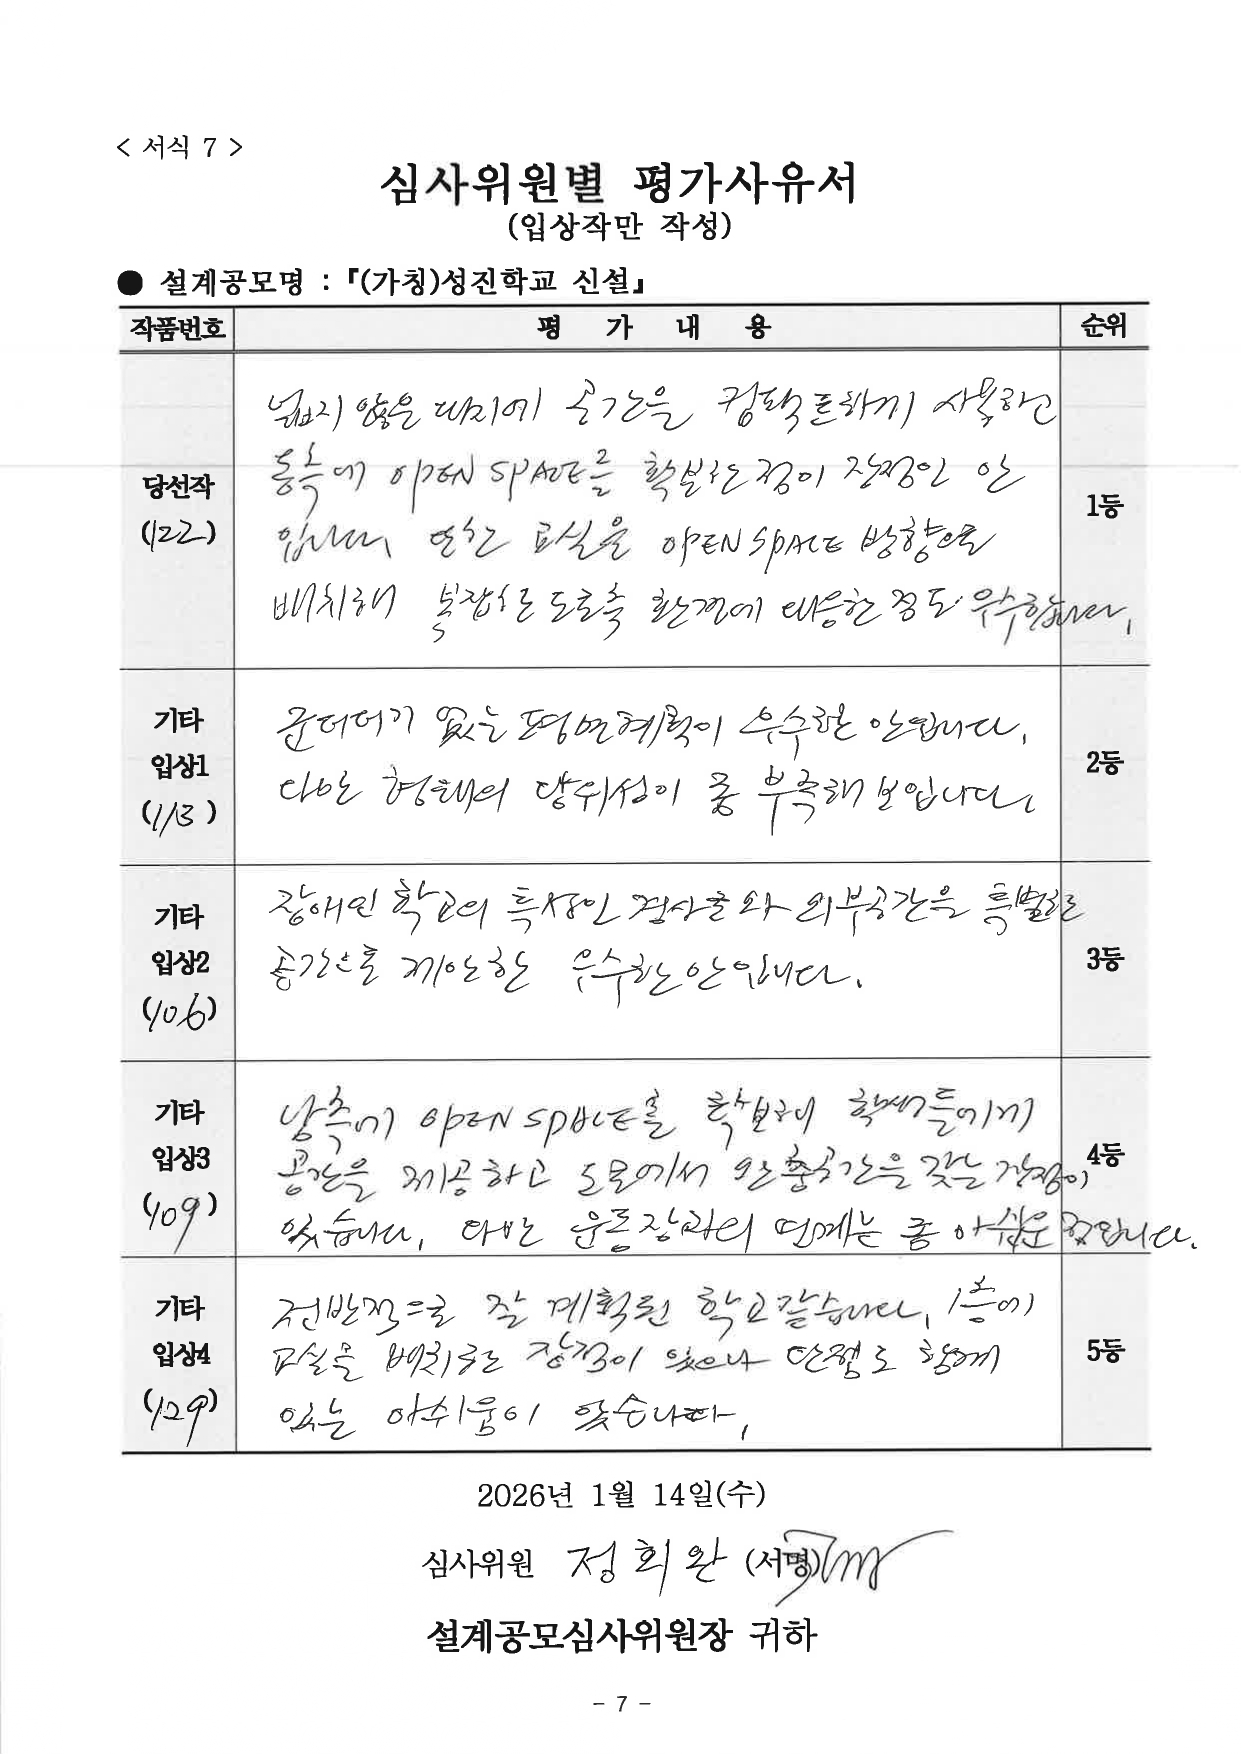 < 서식 7 >
심사위원별 평가사유서
(입상작만 작성)
● 설계공모명 : 『(가칭)성진학교 신설』
작품번호 평 가 내 용 순위
당선작
(122)
넓지 않은 대지에 공간을 컴팩트하게 사용하고
동측에 OPEN SPACE를 확보하는 점이 장점인 안
입니다. 또한 교실을 OPEN SPACE 방향으로
배치해 복잡한 도로측 환경에 대응한 점도 우수합니다.
1등
기타
입상1
(113)
군더더기 없는 평면계획이 우수한 안입니다.
다만 형태의 당위성이 좀 부족해 보입니다.
2등
기타
입상2
(106)
장애인 학교의 특성인 경사로와 외부공간은 특별한
공간으로 제안한 우수한 안입니다.
3등
기타
입상3
(109)
남측에 OPEN SPACE를 확보하여 학생들에게
공간을 제공하고 도로에서 완충공간을 갖는 장점이
있습니다. 다만 운동장과의 연계는 좀 아쉬운 점입니다.
4등
기타
입상4
(129)
전반적으로 잘 계획된 학교같습니다. 1층에
교실을 배치하는 장점이 있으나 단점도 함께
있는 아쉬움이 있습니다.
5등
2026년 1월 14일(수)
심사위원 정회완 (서명)
설계공모심사위원장 귀하
- 7 -